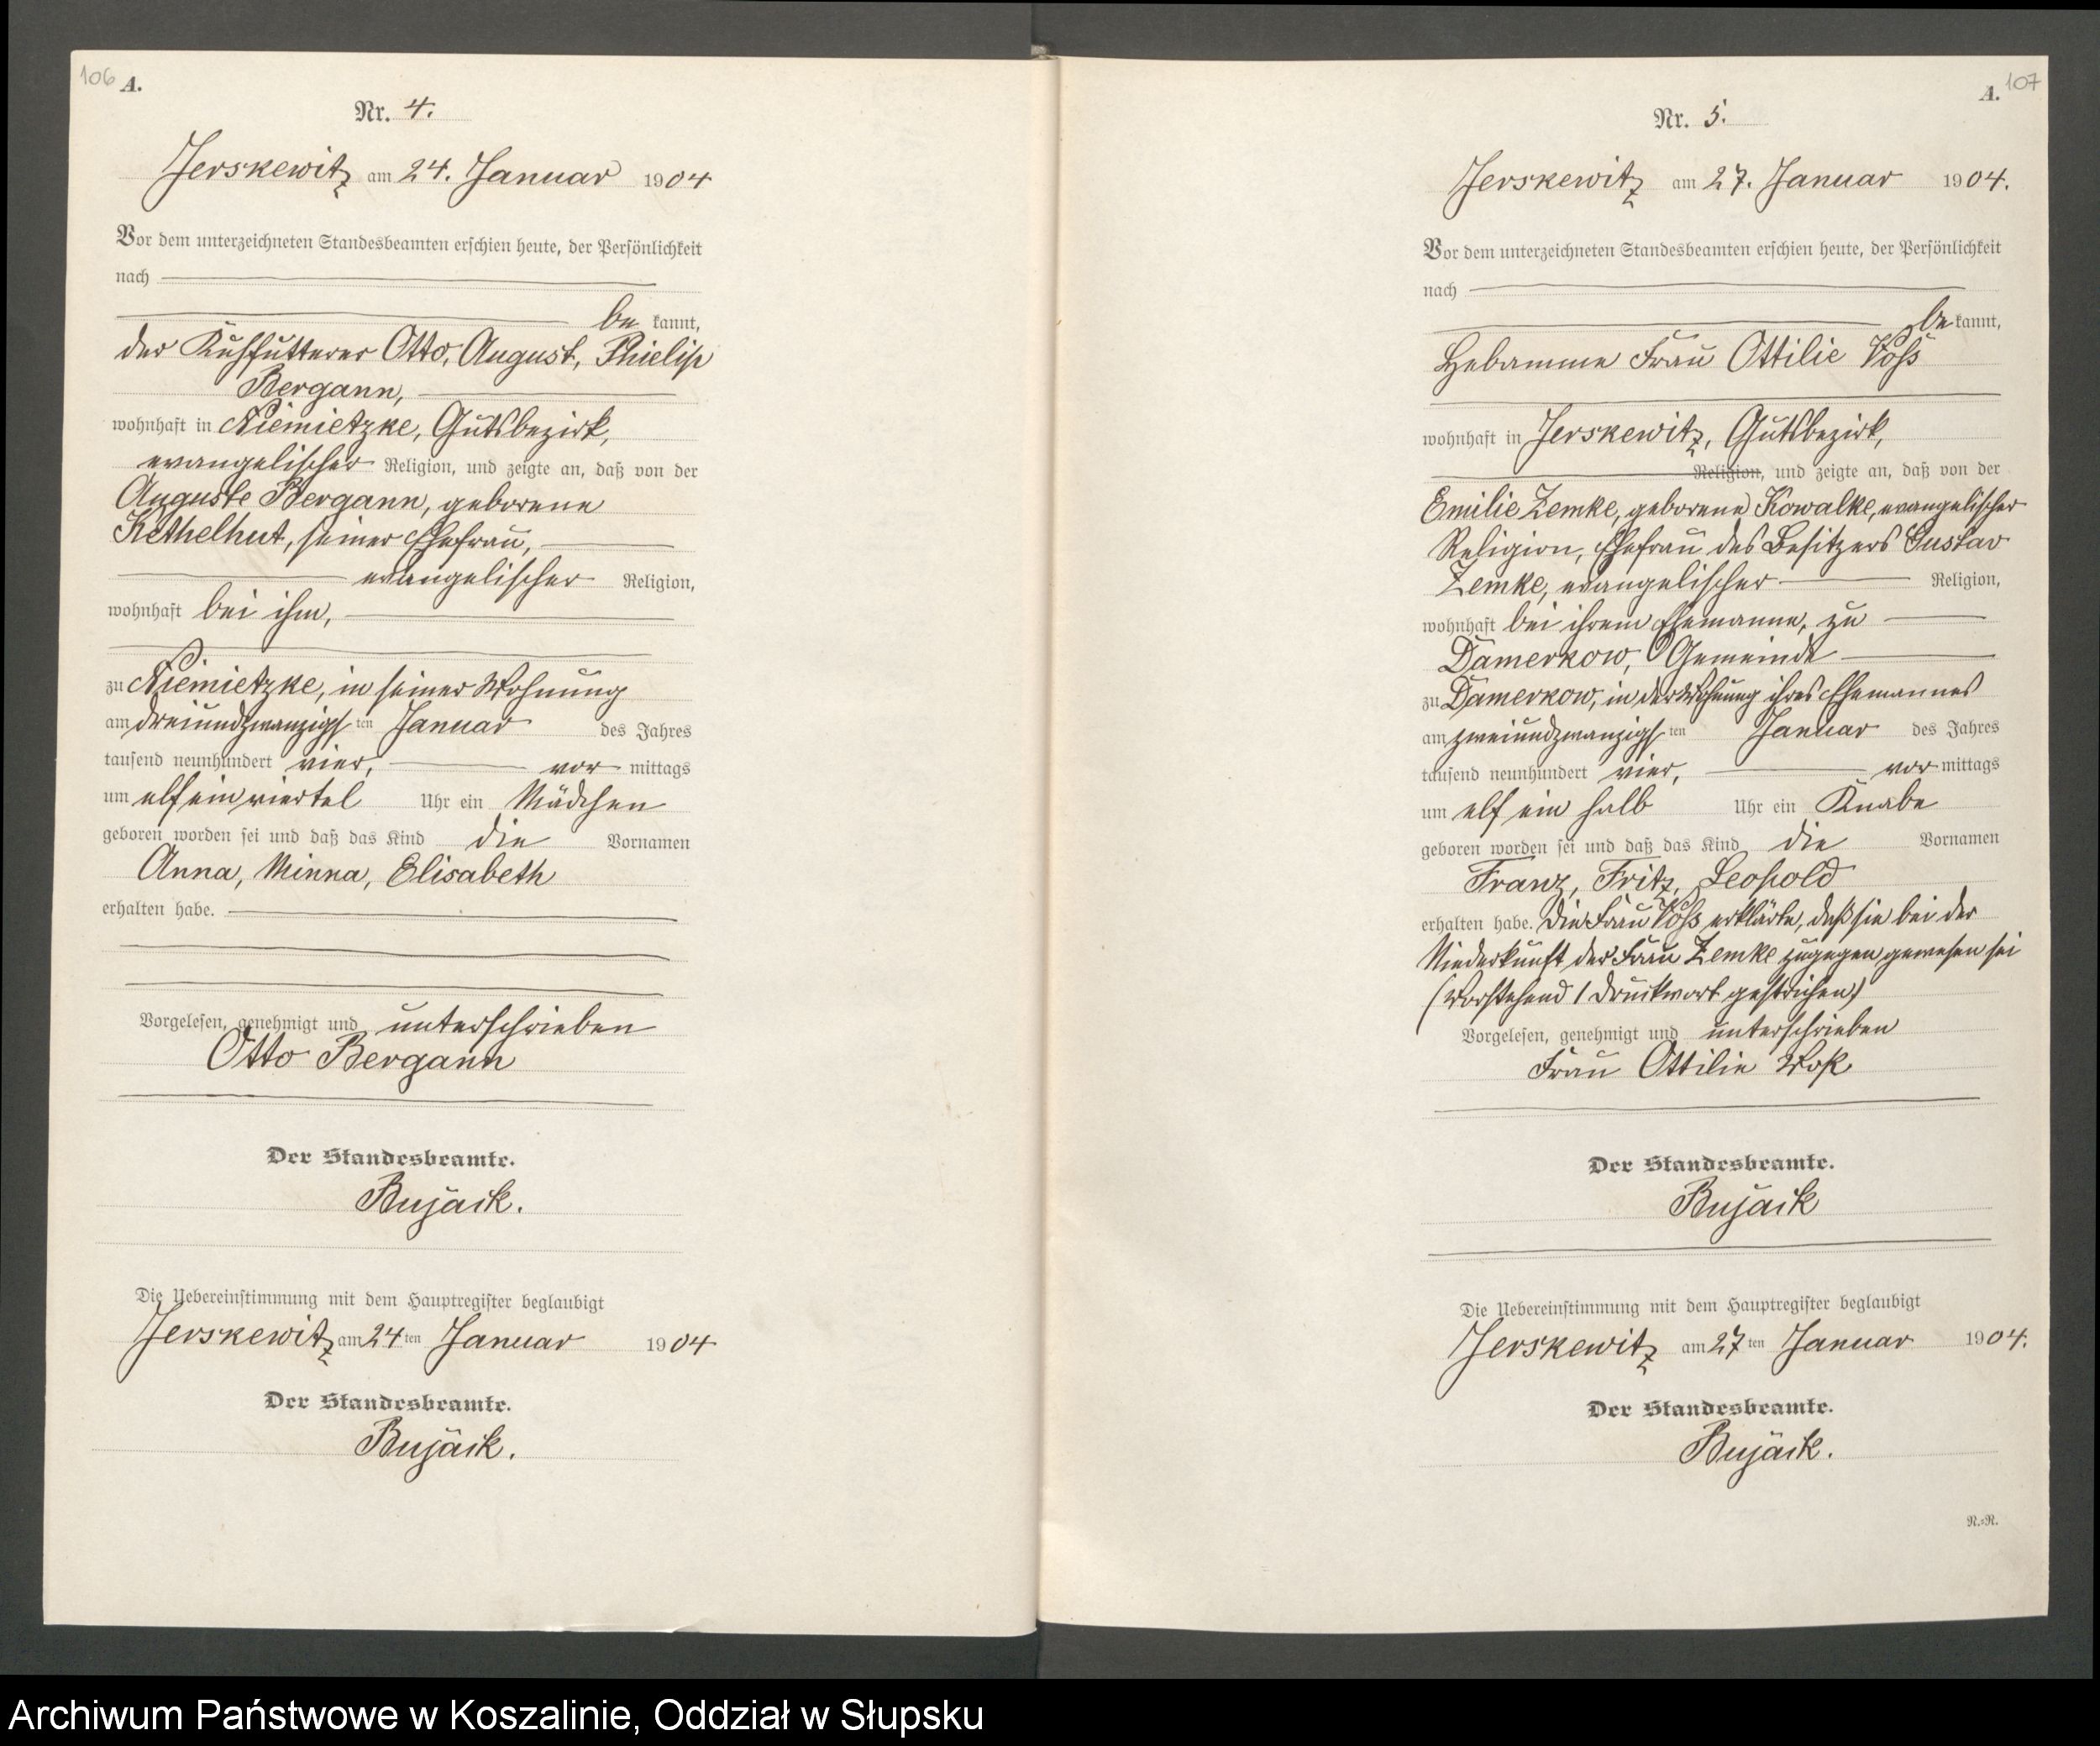 106 A.
Nr. 4.
Jerskewitz am 24. Januar 1904
Vor dem unterzeichneten Standesbeamten erschien heute, der Persönlichkeit
nach
be kannt,
der Kuhfutterer Otto, August, Phielip
Bergann,
wohnhaft in Niemietzke, Gutsbezirk,
evangelischer Religion, und zeigte an, daß von der
Auguste Bergann, geborene
Kethelhut, seiner Ehefrau,
evangelischer Religion,
wohnhaft bei ihm,
zu Niemietzke, in seiner Wohnung
am dreiundzwanzigsten Januar des Jahres
tausend neunhundert vier, vor mittags
um elf ein viertel Uhr ein Mädchen
geboren worden sei und daß das Kind die Vornamen
Anna, Minna, Elisabeth
erhalten habe.
Vorgelesen, genehmigt und unterschrieben
Otto Bergann
Der Standesbeamte.
Bujack.
Die Uebereinstimmung mit dem Hauptregister beglaubigt
Jerskewitz am 24 ten Januar 1904
Der Standesbeamte.
Bujack.
A. 107
Nr. 5.
Jerskewitz am 27. Januar 1904.
Vor dem unterzeichneten Standesbeamten erschien heute, der Persönlichkeit
nach
be kannt,
Hebamme Frau Ottilie Voß
wohnhaft in Jerskewitz, Gutsbezirk,
Religion, und zeigte an, daß von der
Emilie Zemke, geborene Kowalke, evangelischer
Religion, Ehefrau des Besitzers Gustav
Zemke, evangelischer Religion,
wohnhaft bei ihrem Ehemanne, zu
Damerkow, Gemeinde
zu Damerkow, in der Wohnung ihres Ehemannes
am zweiundzwanzigsten Januar des Jahres
tausend neunhundert vier, vor mittags
um elf ein halb Uhr ein Knabe
geboren worden sei und daß das Kind die Vornamen
Franz, Fritz, Leopold
erhalten habe. Die Frau Voß erklärte, daß sie bei der
Niederkunft der Frau Zemke zugegen gewesen sei
(Vorstehend 1 Druckwort gestrichen)
Vorgelesen, genehmigt und unterschrieben
Frau Ottilie Voß
Der Standesbeamte.
Bujack
Die Uebereinstimmung mit dem Hauptregister beglaubigt
Jerskewitz am 27 ten Januar 1904.
Der Standesbeamte.
Bujack.
N.=R.
Archiwum Państwowe w Koszalinie, Oddział w Słupsku